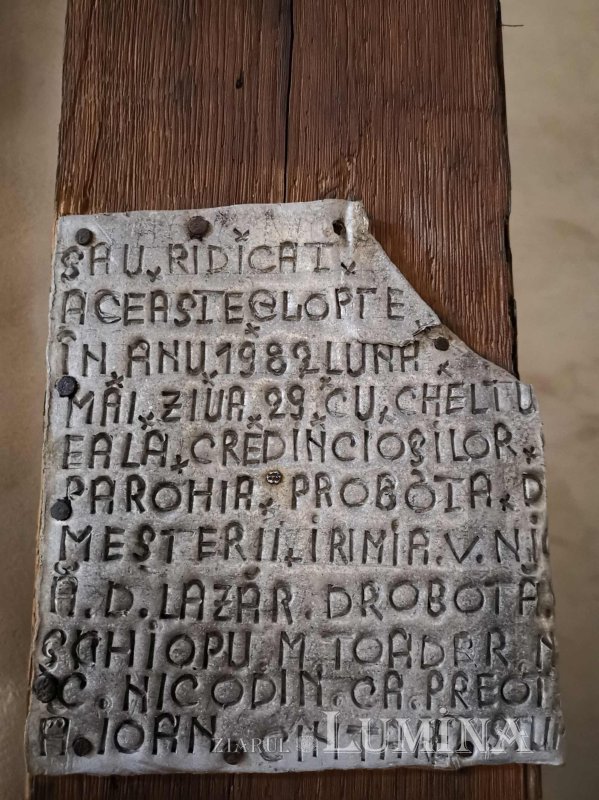 SAU RIDICAT
ACEASTE CLOPTE
ÎN ANU 1982 LUNA
MAI ZIUA 29 CU CHELTU
EALĂ CREDINCIOȘILOR
PAROHIA PROBOTA D
MEȘTERII IRIMIA.V.
Ă.D.LAZĂR.DROBOTĂ.
ȘCHIOPU.M.TOADER.
C.NICODIN.CA.PREOT
M.IOAN
ZIARUL LUMINA